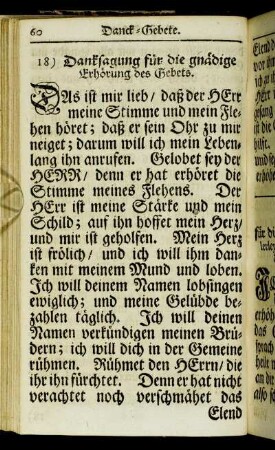 60 Danck-Gebete.
18) Danksagung für die gnädige
Erhörung des Gebets.
DAs ist mir lieb/ daß der HErr
meine Stimme und mein Fle-
hen höret; daß er sein Ohr zu mir
neiget; darum will ich mein Leben-
lang ihn anrufen. Gelobet sey der
HERR/ denn er hat erhöret die
Stimme meines Flehens. Der
HErr ist meine Stärke und mein
Schild; auf ihn hoffet mein Herz/
und mir ist geholfen. Mein Herz
ist frölich/ und ich will ihm dan-
ken mit meinem Mund und loben.
Ich will deinem Namen lobsingen
ewiglich; und meine Gelübde be-
zahlen täglich. Ich will deinen
Namen verkündigen meinen Brü-
dern; ich will dich in der Gemeine
rühmen. Rühmet den HErrn/ die
ihr ihn fürchtet. Denn er hat nicht
verachtet noch verschmähet das
Elend